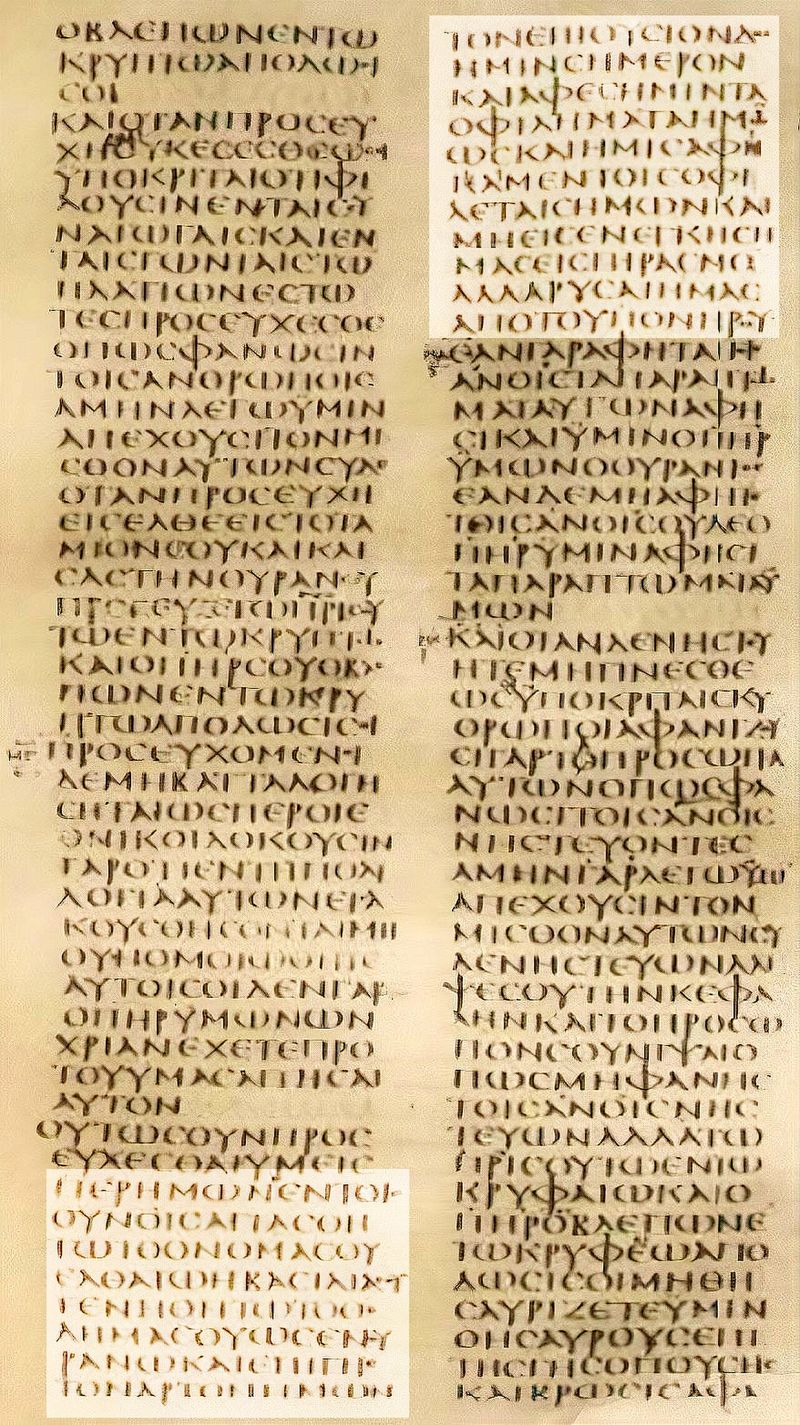 ΟΒΛΕΠΩΝΕΝΤΩ
ΚΡΥΠΤΩΑΠΟΔΩϹΙ
ϹΟΙ
ΚΑΙΟΤΑΝΠΡΟϹΕΥ
ΧΗΟΥΚΕϹΕϹΘΕΩϹΟΙ
ΥΠΟΚΡΙΤΑΙΟΤΙΦΙ
ΛΟΥϹΙΝΕΝΤΑΙϹϹΥ
ΝΑΓΩΓΑΙϹΚΑΙΕΝ
ΤΑΙϹΓΩΝΙΑΙϹΤΩ
ΠΛΑΤΙΩΝΕϹΤΩ
ΤΕϹΠΡΟϹΕΥΧΕϹΘΕ
ΟΠΩϹΦΑΝΩϹΙΝ
ΤΟΙϹΑΝΘΡΩΠΟΙϹ
ΑΜΗΝΛΕΓΩΥΜΙΝ
ΑΠΕΧΟΥϹΙΤΟΝΜΙ
ϹΘΟΝΑΥΤΩΝϹΥΔΕ
ΟΤΑΝΠΡΟϹΕΥΧΗ
ΕΙϹΕΛΘΕΕΙϹΤΟΤΑ
ΜΙΟΝϹΟΥΚΑΙΚΛΙ
ϹΑϹΤΗΝΘΥΡΑΝϹΟΥ
ΠΡΟϹΕΥΞΕΤΩΠΡΙϹΟΥ
ΤΩΕΝΤΩΚΡΥΠΤΩ
ΚΑΙΟΠΗΡϹΟΥΟΒΛΕ
ΠΩΝΕΝΤΩΚΡΥ
ΠΤΩΑΠΟΔΩϹΙϹΟΙ
ΠΡΟϹΕΥΧΟΜΕΝΟΙ
ΔΕΜΗΒΑΤΤΑΛΟΓΗ
ϹΗΤΑΙΩϹΠΕΡΟΙΕ
ΘΝΙΚΟΙΔΟΚΟΥϹΙΝ
ΓΑΡΟΤΙΕΝΤΗΠΟΛΥ
ΛΟΓΙΑΑΥΤΩΝΕΙϹΑ
ΚΟΥϹΘΗϹΟΝΤΑΙΜΗ
ΟΥΝΟΜΟΙΩΘΗΤΕ
ΑΥΤΟΙϹΟΙΔΕΝΓΑΡ
ΟΠΗΡΥΜΩΝΩΝ
ΧΡΙΑΝΕΧΕΤΕΠΡΟ
ΤΟΥΥΜΑϹΑΙΤΗϹΑΙ
ΑΥΤΟΝ
ΟΥΤΩϹΟΥΝΠΡΟϹ
ΕΥΧΕϹΘΑΙΥΜΕΙϹ
ΠΕΡΗΜΩΝΟΕΝΤΟΙϹ
ΟΥΝΟΙϹΑΓΙΑϹΘΗ
ΤΩΤΟΟΝΟΜΑϹΟΥ
ΕΛΘΑΤΩΗΒΑϹΙΛΙΑϹΟΥ
ΓΕΝΗΘΗΤΩΤΟΘΕ
ΛΗΜΑϹΟΥΩϹΕΝΟΥ
ΡΑΝΩΚΑΙΕΠΙΓΗϹ
ΤΟΝΑΡΤΟΝΗΜΩΝ
ΤΟΝΕΠΙΟΥϹΙΟΝΔΟϹ
ΗΜΙΝϹΗΜΕΡΟΝ
ΚΑΙΑΦΕϹΗΜΙΝΤΑ
ΟΦΙΛΗΜΑΤΑΗΜΩ
ΩϹΚΑΙΗΜΙϹΑΦΗ
ΚΑΜΕΝΤΟΙϹΟΦΙ
ΛΕΤΑΙϹΗΜΩΝΚΑΙ
ΜΗΕΙϹΕΝΕΓΚΗϹΗ
ΜΑϹΕΙϹΠΙΡΑϹΜΟ
ΑΛΛΑΡΥϹΑΙΗΜΑϹ
ΑΠΟΤΟΥΠΟΝΗΡΟΥ
ΕΑΝΓΑΡΑΦΗΤΑΙΤΟΙϹ
ΑΝΟΙϹΤΑΠΑΡΑΠΤΩ
ΜΑΤΑΑΥΤΩΝΑΦΗ
ϹΙΚΑΙΥΜΙΝΟΠΗΡ
ΥΜΩΝΟΟΥΡΑΝΙΟϹ
ΕΑΝΔΕΜΗΑΦΗΤΕ
ΤΟΙϹΑΝΟΙϹΟΥΔΕΟ
ΠΗΡΥΜΙΝΑΦΗϹΙ
ΤΑΠΑΡΑΠΤΩΜΑΤΑΥ
ΜΩΝ
ΚΑΙΟΤΑΝΔΕΝΗϹΤΕΥ
ΗΤΕΜΗΓΙΝΕϹΘΕ
ΩϹΥΠΟΚΡΙΤΑΙϹΚΥ
ΘΡΩΠΟΙΑΦΑΝΙΖΟΥ
ϹΙΓΑΡΤΟΠΡΟϹΩΠΑ
ΑΥΤΩΝΟΠΩϹΦΑ
ΝΩϹΙΤΟΙϹΑΝΟΙϹ
ΝΗϹΤΕΥΟΝΤΕϹ
ΑΜΗΝΓΑΡΛΕΓΩΥΜΙ
ΑΠΕΧΟΥϹΙΝΤΟΝ
ΜΙϹΘΟΝΑΥΤΩΝϹΥ
ΔΕΝΗϹΤΕΥΩΝΑΛΙ
ΨΕϹΟΥΤΗΝΚΕΦΑ
ΛΗΝΚΑΙΤΟΠΡΟϹΩ
ΠΟΝϹΟΥΝΙΨΑΙΟ
ΠΩϹΜΗΦΑΝΗϹ
ΤΟΙϹΑΝΟΙϹΝΗϹ
ΤΕΥΩΝΑΛΛΑΤΩ
ΠΡΙϹΟΥΤΩΕΝΤΩ
ΚΡΥΦΑΙΩΚΑΙΟ
ΠΗΡΟΒΛΕΠΩΝΕ
ΤΩΚΡΥΦΕΩΑΠΟ
ΔΩϹΙϹΟΙΜΗΘΗ
ϹΑΥΡΙΖΕΤΕΥΜΙΝ
ΘΗϹΑΥΡΟΥϹΕΠΙ
ΤΗϹΓΗϹΟΠΟΥϹΗϹ
ΚΑΙΒΡΩϹΙϹΑΦΑ